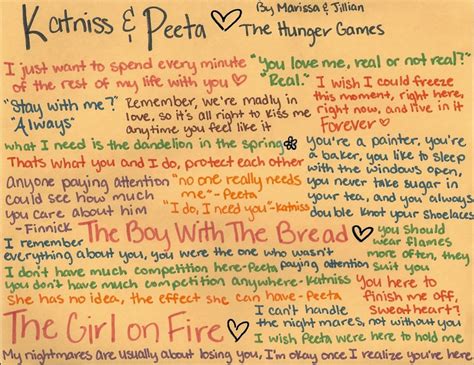 Katniss & Peeta ♡ By Marissa & Jillian
The Hunger Games
I just want to spend every minute
of the rest of my life with you ♡
"You love me, real or not real?"
"Real."
"Stay with me?"
"Always"
Remember, we're madly in
love, so it's all right to kiss me
anytime you feel like it
I wish I could freeze
this moment, right here,
right now, and live in it
forever ♡
what I need is the dandelion in the spring
Thats what you and I do, protect each other
you're a painter, you're
a baker, you like to sleep
with the windows open,
you never take sugar in
your tea, and you always
double knot your shoelaces
anyone paying attention
could see how much
you care about him
- Finnick
"no one really needs
me."- Peeta
"I do, I need you"-Katniss
The Boy With The Bread ♡
I remember
everything about you, you were the one who wasn't
paying attention
you should
wear flames
more often, they
suit you
I don't have much competition here-Peeta
you don't have much competition anywhere- Katniss
She has no idea, the effect she can have-Peeta
You here to
finish me off,
sweetheart?
The Girl on Fire ♡
I can't handle
the nightmares, not without you
I wish Peeta were here to hold me
My nightmares are usually about losing you, I'm okay once I realize you're here